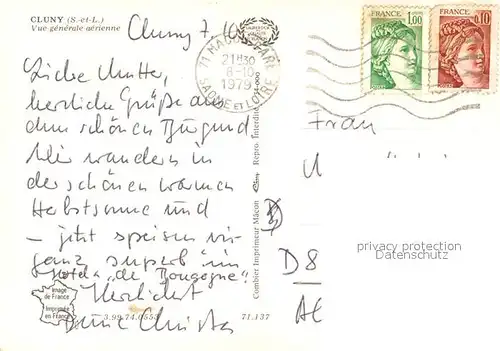 CLUNY (S.-et-L.)
Vue générale aérienne
Cluny 7.10
Liebe Mutter,
herzliche Grüße aus
dem schönen Burgund
Wir wandern in
der schönen warmen
Herbstsonne und
– jetzt speisen wir
ganz superb "im
Hotel de Bourgogne".
Herzlichst
Deine Christa
21H30
8-10
1979
SAONE ET LOIRE
FRANCE
1,00
POSTES
FRANCE
0,10
POSTES
Frau
U
D 8
privacy protection
Datenschutz
Combier Imprimeur Mâcon
Repro. Interdite
Image
de France
Imprimée
en France
3.99.74.0553
71.137